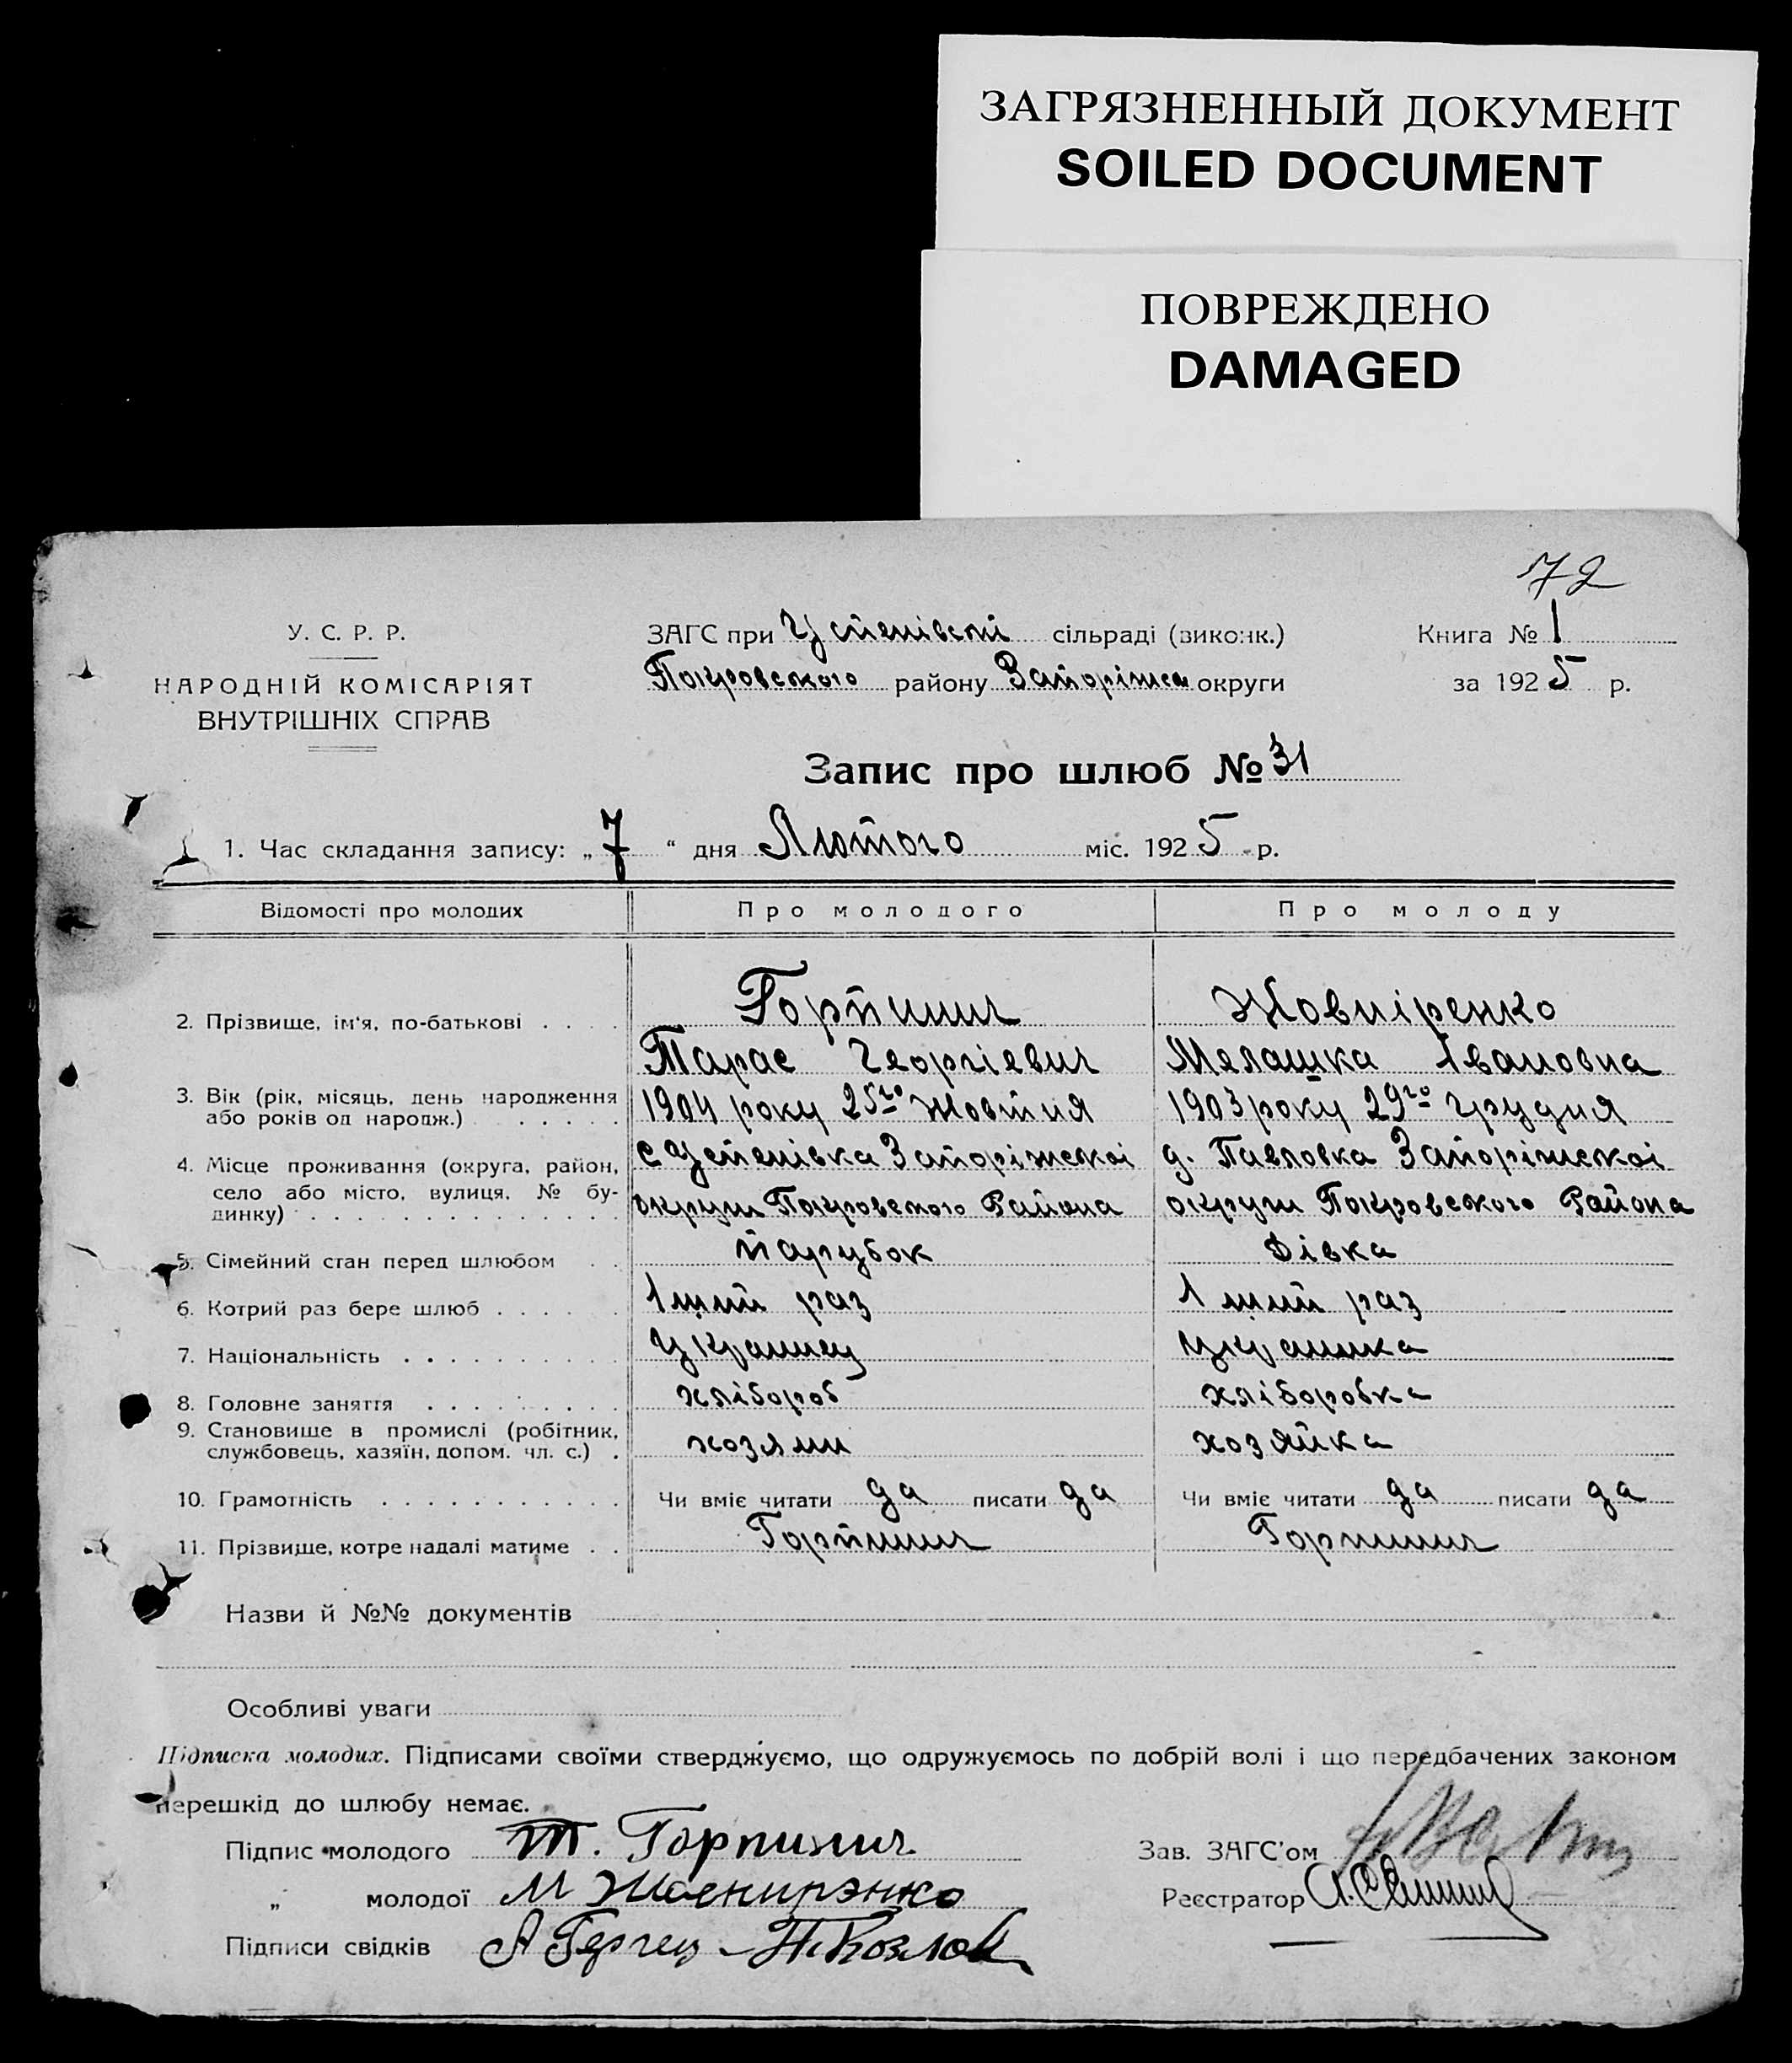 ЗАГРЯЗНЕННЫЙ ДОКУМЕНТ
SOILED DOCUMENT
ПОВРЕЖДЕНО
DAMAGED
72
У. С. Р. Р.
НАРОДНІЙ КОМІСАРІЯТ
ВНУТРІШНІХ СПРАВ
ЗАГС при Успенівскій сільраді (виконк.)
Покровського району Запоріжск округи
Книга № 1
за 1925 р.
Запис про шлюб № 31
1. Час складання запису: „ 7 “ дня Лютого міс. 1925 р.
Відомості про молодих Про молодого Про молоду
2. Прізвище, ім'я, по-батькові . . . . Горпинич Жовніренко
Тарас Георгіевич Мелашка Івановна
3. Вік (рік, місяць, день народження
або років од народж.) . . . . . 1904 року 25го Жовтня 1903 року 29го Грудня
4. Місце проживання (округа, район,
село або місто, вулиця, № бу-
динку) . . . . . . . . . . . . . .
с Успенівка Запоріжскоі д. Павловка Запоріжскоі
округи Покровского Района округи Покровського Района
5. Сімейний стан перед шлюбом . . парубок Дівка
6. Котрий раз бере шлюб . . . . . 1 ший раз 1 ший раз
7. Національність . . . . . . . . . . Украинец Украинка
8. Головне заняття . . . . . . . . . хлібороб хліборобка
9. Становище в промислі (робітник,
службовець, хазяїн, допом. чл. с.) . хозяин хозяйка
10. Грамотність . . . . . . . . . . . Чи вміє читати да писати да Чи вміє читати да писати да
11. Прізвище, котре надалі матиме . . Горпинич Горпинич
Назви й №№ документів
Особливі уваги
Підписка молодих. Підписами своїми стверджуємо, що одружуємось по добрій волі і що передбачених законом
перешкід до шлюбу немає.
Підпис молодого Т. Горпинич Зав. ЗАГС'ом
„ молодої М Реєстратор
Підписи свідків А Козлов